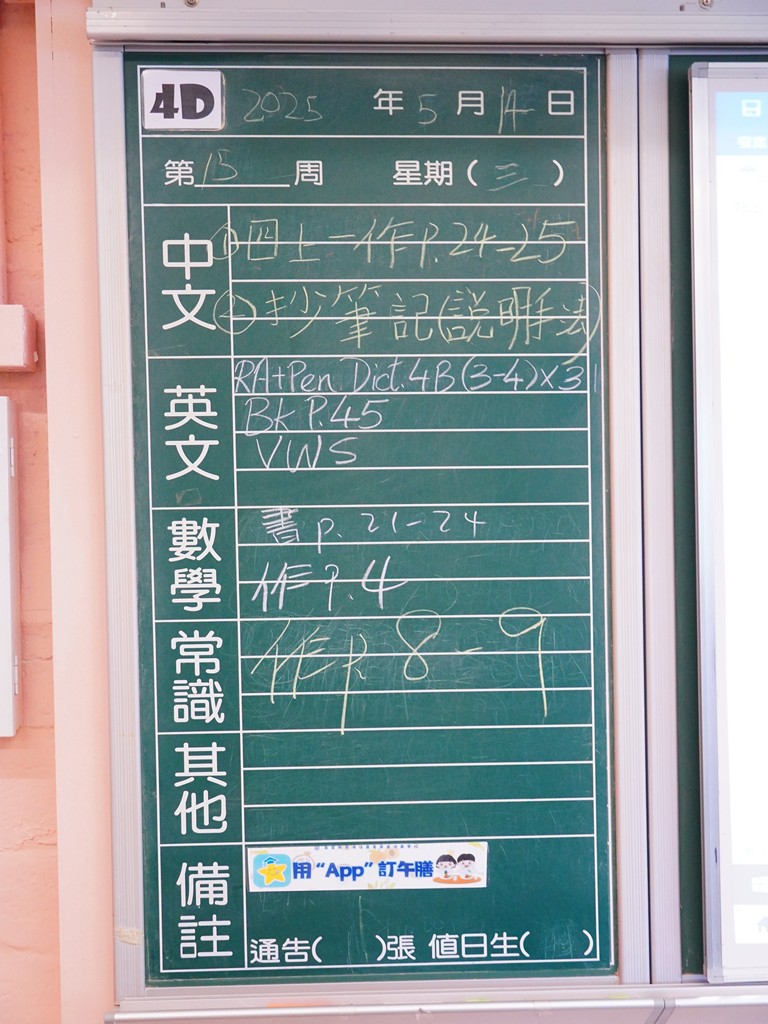 4D 2025 年 5 月 14 日
第 15 周 星期 ( 三 )
中文
① 四上一作 P.24-25
② 抄筆記(説明手法)
英文
RA+Pen. Dict. 4B (3-4) x 3
BK P.45
VWS
數學
書 p. 21-24
作 P.4
常識
作 P. 8-9
其他
備註
用 “App” 訂午膳
通告( )張 值日生( )